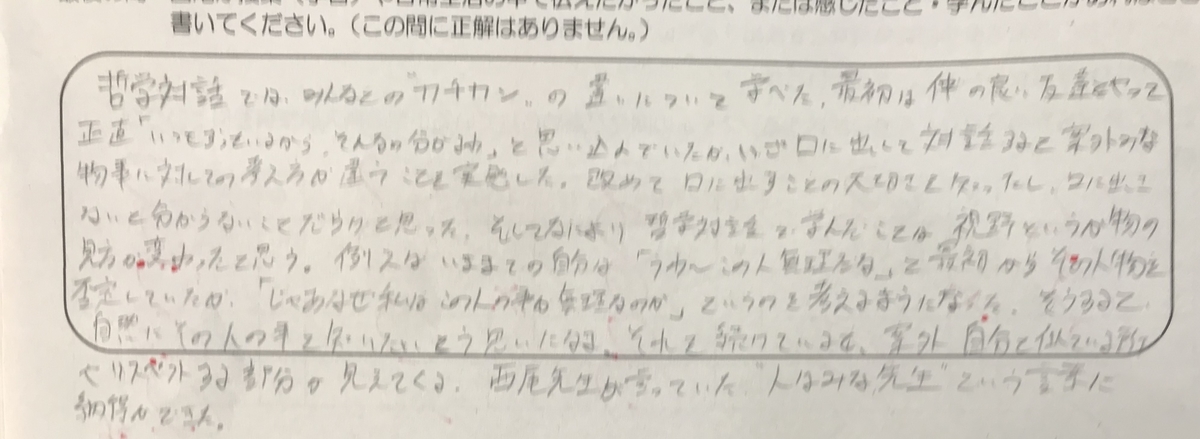 書いてください。(この問に正解はありません。)
哲学対話では、みんなとの"カチカン"の違いについて学べた。最初は仲の良い友達とやって
正直「いつもずっといるから、そんなの分かるわ」と思い込んでいたが、いざ口に出して対話すると案外みな
物事に対しての考え方が違うことを実感した。改めて口に出すことの大切さを知ったし、口に出さ
ないと分からないことだらけと思った。そしてなにより哲学対話で学んだことは視野というか物の
見方が変わったと思う。例えばいままでの自分は「うわ〜この人無理だな」と最初からその人物を
否定していたが、「じゃあなぜ私はこの人の事が無理なのか」というのを考えるようになった。そうすると、
自然にその人の事を知りたいという思いになる。それを続けていると、案外自分と似ている所
やリスペクトする部分が見えてくる。西尾先生が言っていた"人はみな先生"という言葉に
納得ができた。